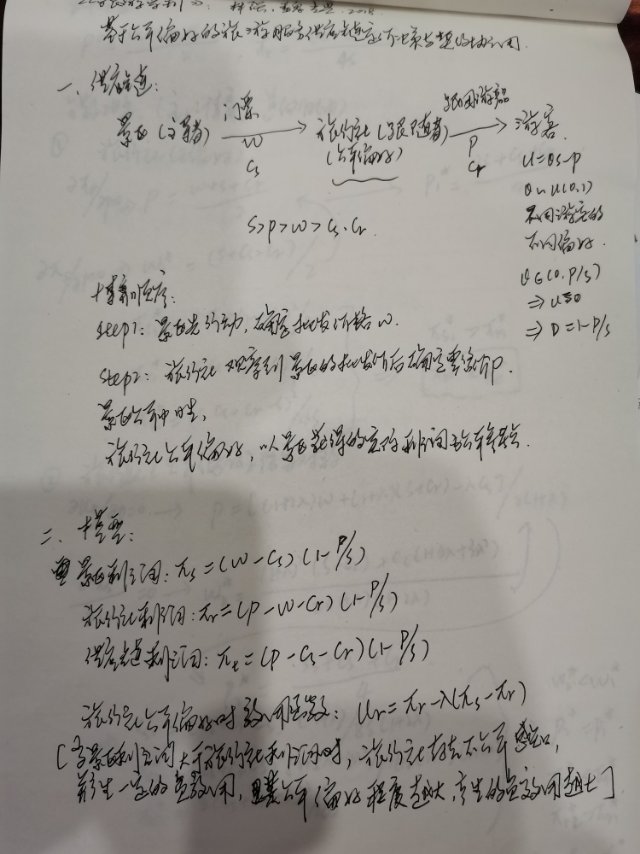 基于公平偏好的旅游服务供应链定价决策与契约协调.
一、供应链:
景区(主导者) 门票 w Cs → 旅行社(跟随者)(公平偏好) 跟团游产品 P Cr → 游客
u=θs-p
θ~U(0,1)
不同游客的
不同偏好.
s>p>w>Cs、Cr
θ∈(0,P/s)
⇒ u≤0
⇒ D=1-P/s
博弈顺序:
step1: 景区先行动, 确定批发价格w.
step2: 旅行社观察到景区的批发价后确定零售价p.
景区公平中性,
旅行社公平偏好, 以景区获得的实际利润为公平参照点.
二、模型:
景区利润: πs=(w-Cs)(1-P/s)
旅行社利润: πr=(p-w-Cr)(1-P/s)
供应链利润: πt=(p-Cs-Cr)(1-P/s)
旅行社公平偏好时效用函数: Ur=πr-λ(πs-πr)
[当景区利润大于旅行社利润时, 旅行社有不公平感知,
产生一定的负效用, 且其公平偏好程度越大, 产生的负效用越大]